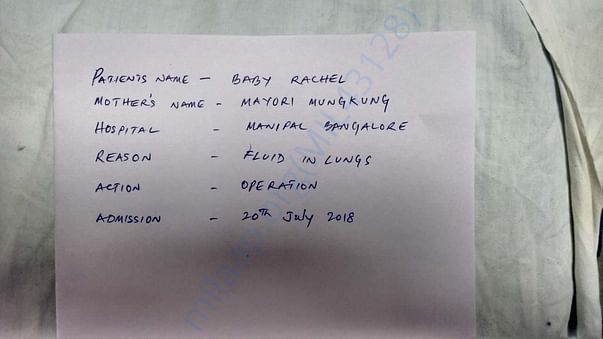 PATIENTS NAME - BABY RACHEL
MOTHER'S NAME - MAYORI MUNGKUNG
HOSPITAL - MANIPAL BANGALORE
REASON - FLUID IN LUNGS
ACTION - OPERATION
ADMISSION - 20TH July 2018